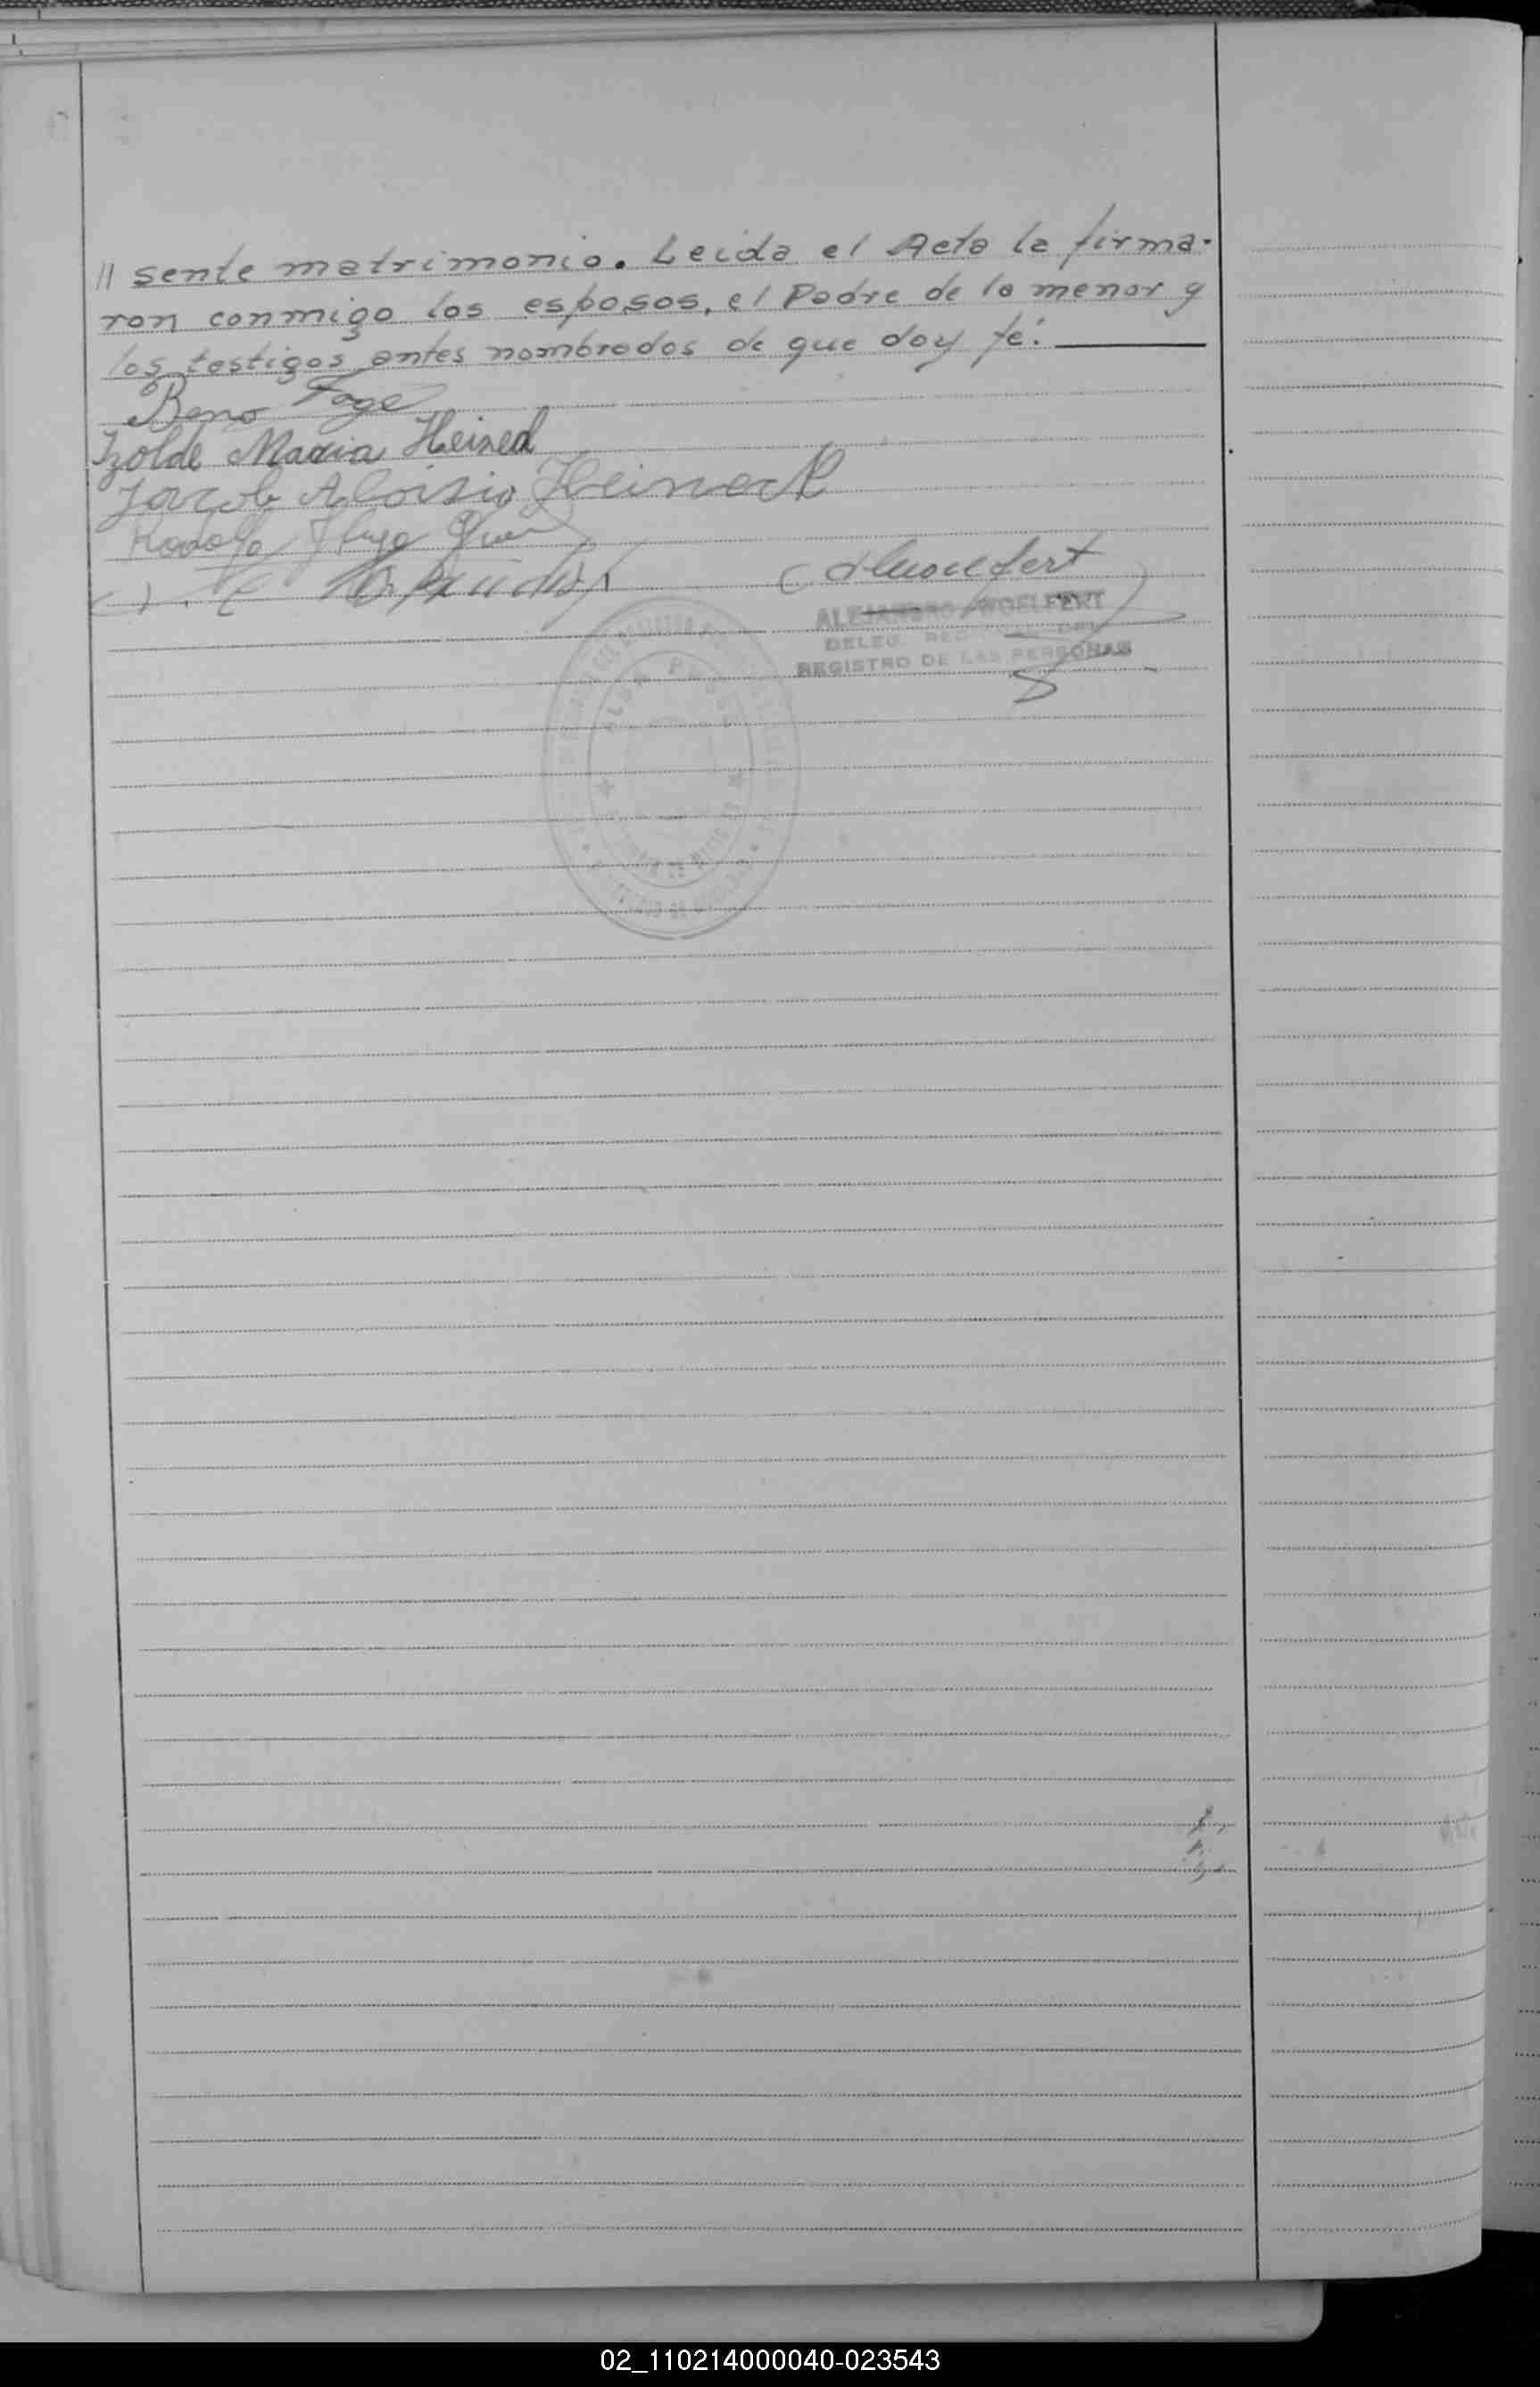 // sente matrimonio. Leida el Acta la firma-
ron conmigo los esposos, el Padre de la menor y
los testigos antes nombrados de que doy fé.
Beno
Izolde Maria Heineck
Jacob Aloisio Heineck
Rodolfo Hugo
ALEJANDRO WOELFERT
DELEG. DEL
REGISTRO DE LAS PERSONAS
02_110214000040-023543